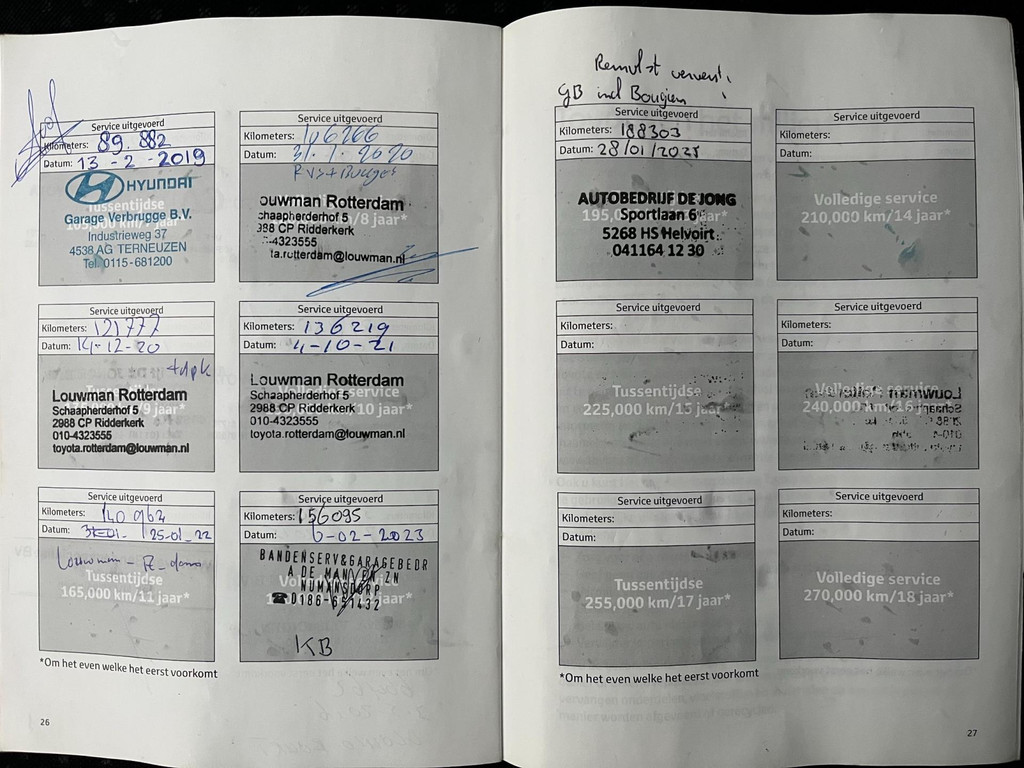 Service uitgevoerd
Kilometers: 89.882
Datum: 13-2-2019
HYUNDAI
Garage Verbrugge B.V.
Industrieweg 37
4538 AG TERNEUZEN
Tel. 0115-681200
Service uitgevoerd
Kilometers: 106266
Datum: 31-1-2020
ouwman Rotterdam
chaapherderhof 5
988 CP Ridderkerk
-4323555
ta.rotterdam@louwman.nl
/8 jaar*
Service uitgevoerd
Kilometers: 121777
Datum: 14-12-20
Louwman Rotterdam
Schaapherderhof 5
2988 CP Ridderkerk
010-4323555
toyota.rotterdam@louwman.nl
/9 jaar*
Service uitgevoerd
Kilometers: 136219
Datum: 4-10-21
Louwman Rotterdam
Schaapherderhof 5
2988 CP Ridderkerk
010-4323555
toyota.rotterdam@louwman.nl
10 jaar*
Service uitgevoerd
Kilometers: 140962
Datum: 25-01-22
Louwman
Tussentijdse
165,000 km/11 jaar*
Service uitgevoerd
Kilometers: 156095
Datum: 6-02-2023
BANDENSERV&GARAGEBEDR
A DE MAN ZN
NUMANSDORP
☎0186-651432
KB
*Om het even welke het eerst voorkomt
26
GB incl Bougien
Service uitgevoerd
Kilometers: 188303
Datum: 28/01/2025
AUTOBEDRIJF DE JONG
Sportlaan 6
5268 HS Helvoirt
041164 12 30
Service uitgevoerd
Kilometers:
Datum:
Volledige service
210,000 km/14 jaar*
Service uitgevoerd
Kilometers:
Datum:
Tussentijdse
225,000 km/15 jaar*
Service uitgevoerd
Kilometers:
Datum:
Volledige service
240,000 km/16 jaar*
Service uitgevoerd
Kilometers:
Datum:
Tussentijdse
255,000 km/17 jaar*
Service uitgevoerd
Kilometers:
Datum:
Volledige service
270,000 km/18 jaar*
*Om het even welke het eerst voorkomt
27